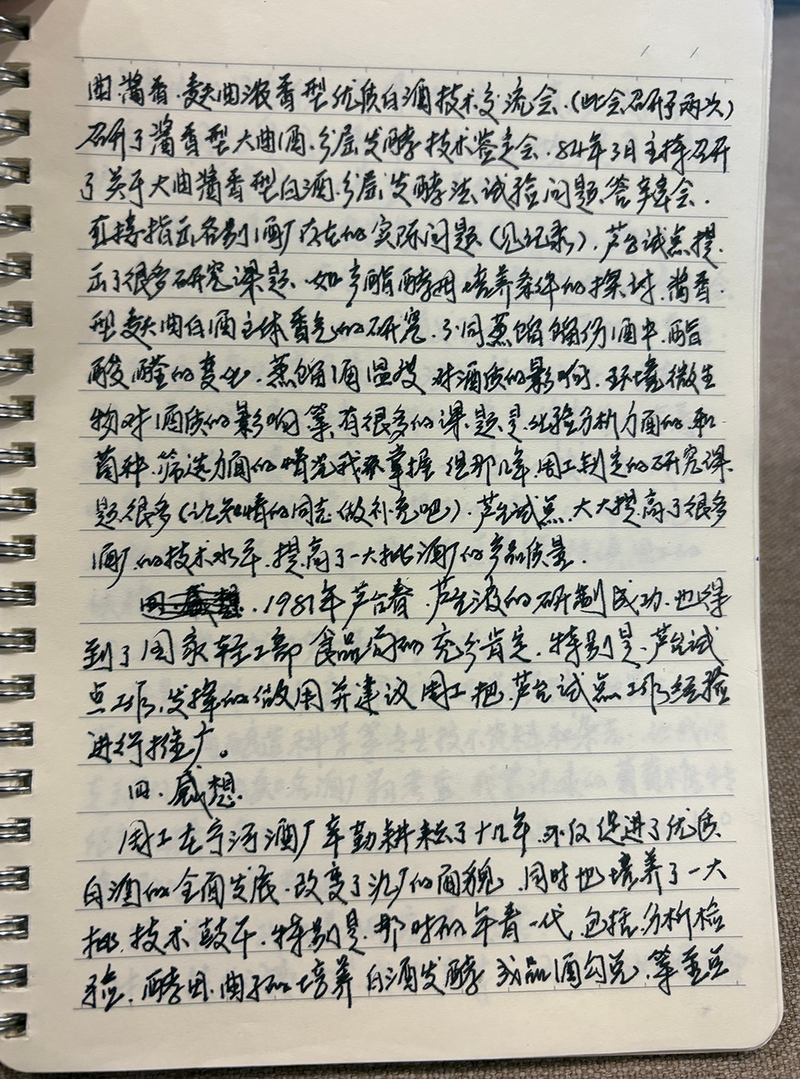 曲酱香.麸曲浓香型优质白酒技术交流会.(此会召开了两次)
召开了酱香型大曲酒.分层发酵技术鉴定会.84年3月主持召开
了关于大曲酱香型白酒.分层发酵法试验问题.答辩会.
直接指示各别酒厂存在的实际问题(见记录).芦台试点提.
示了很多研究课题.如产酯酵母培养条件的探讨.酱香.
型麸曲白酒主体香气的研究.不同蒸馏馏份酒中.酯
酸醛的变化.蒸馏酒温度对酒质的影响.环境微生
物对酒质的影响等.有很多的课题是化验分析方面的和
菌种.筛选方面的情况我不掌握但那几年周工制定的研究课
题很多(让知情的同志做补充吧).芦台试点.大大提高了很多
酒厂的技术水平.提高了一大批酒厂的产品质量.
1981年芦台春.芦台液的研制成功.也得
到了国家轻工部食品局的充分肯定.特别是.芦台试
点工作.发挥的做用并建议周工把芦台试点工作经验
进行推广。
四.感想.
周工在宁河酒厂辛勤耕耘了十几年.不仅促进了优质
白酒的全面发展.改变了沉厂的面貌.同时也培养了一大
批.技术鼓干.特别是.那时的年青一代.包括.分析检
验.酵母.曲子的培养白酒发酵成品酒勾兑.等重点